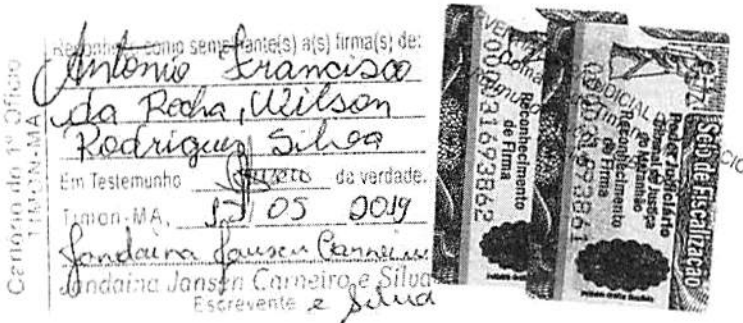 Cartório do 1º Ofício
TIMON-MA
Reconheço como semelhante(s) a(s) firma(s) de:
Antonio Francisco
da Rocha, Wilson
Rodrigues Silva
Em Testemunho da verdade.
Timon-MA, 05 2019
Jandaina Jansen Carneiro
Jandaina Jansen Carneiro e Silva
Escrevente e Silva
Reconhecimento
de Firma
000031693862
Selo de Fiscalização
Poder Judiciário
Tribunal de Justiça
do Maranhão
Reconhecimento
de Firma
000031693861